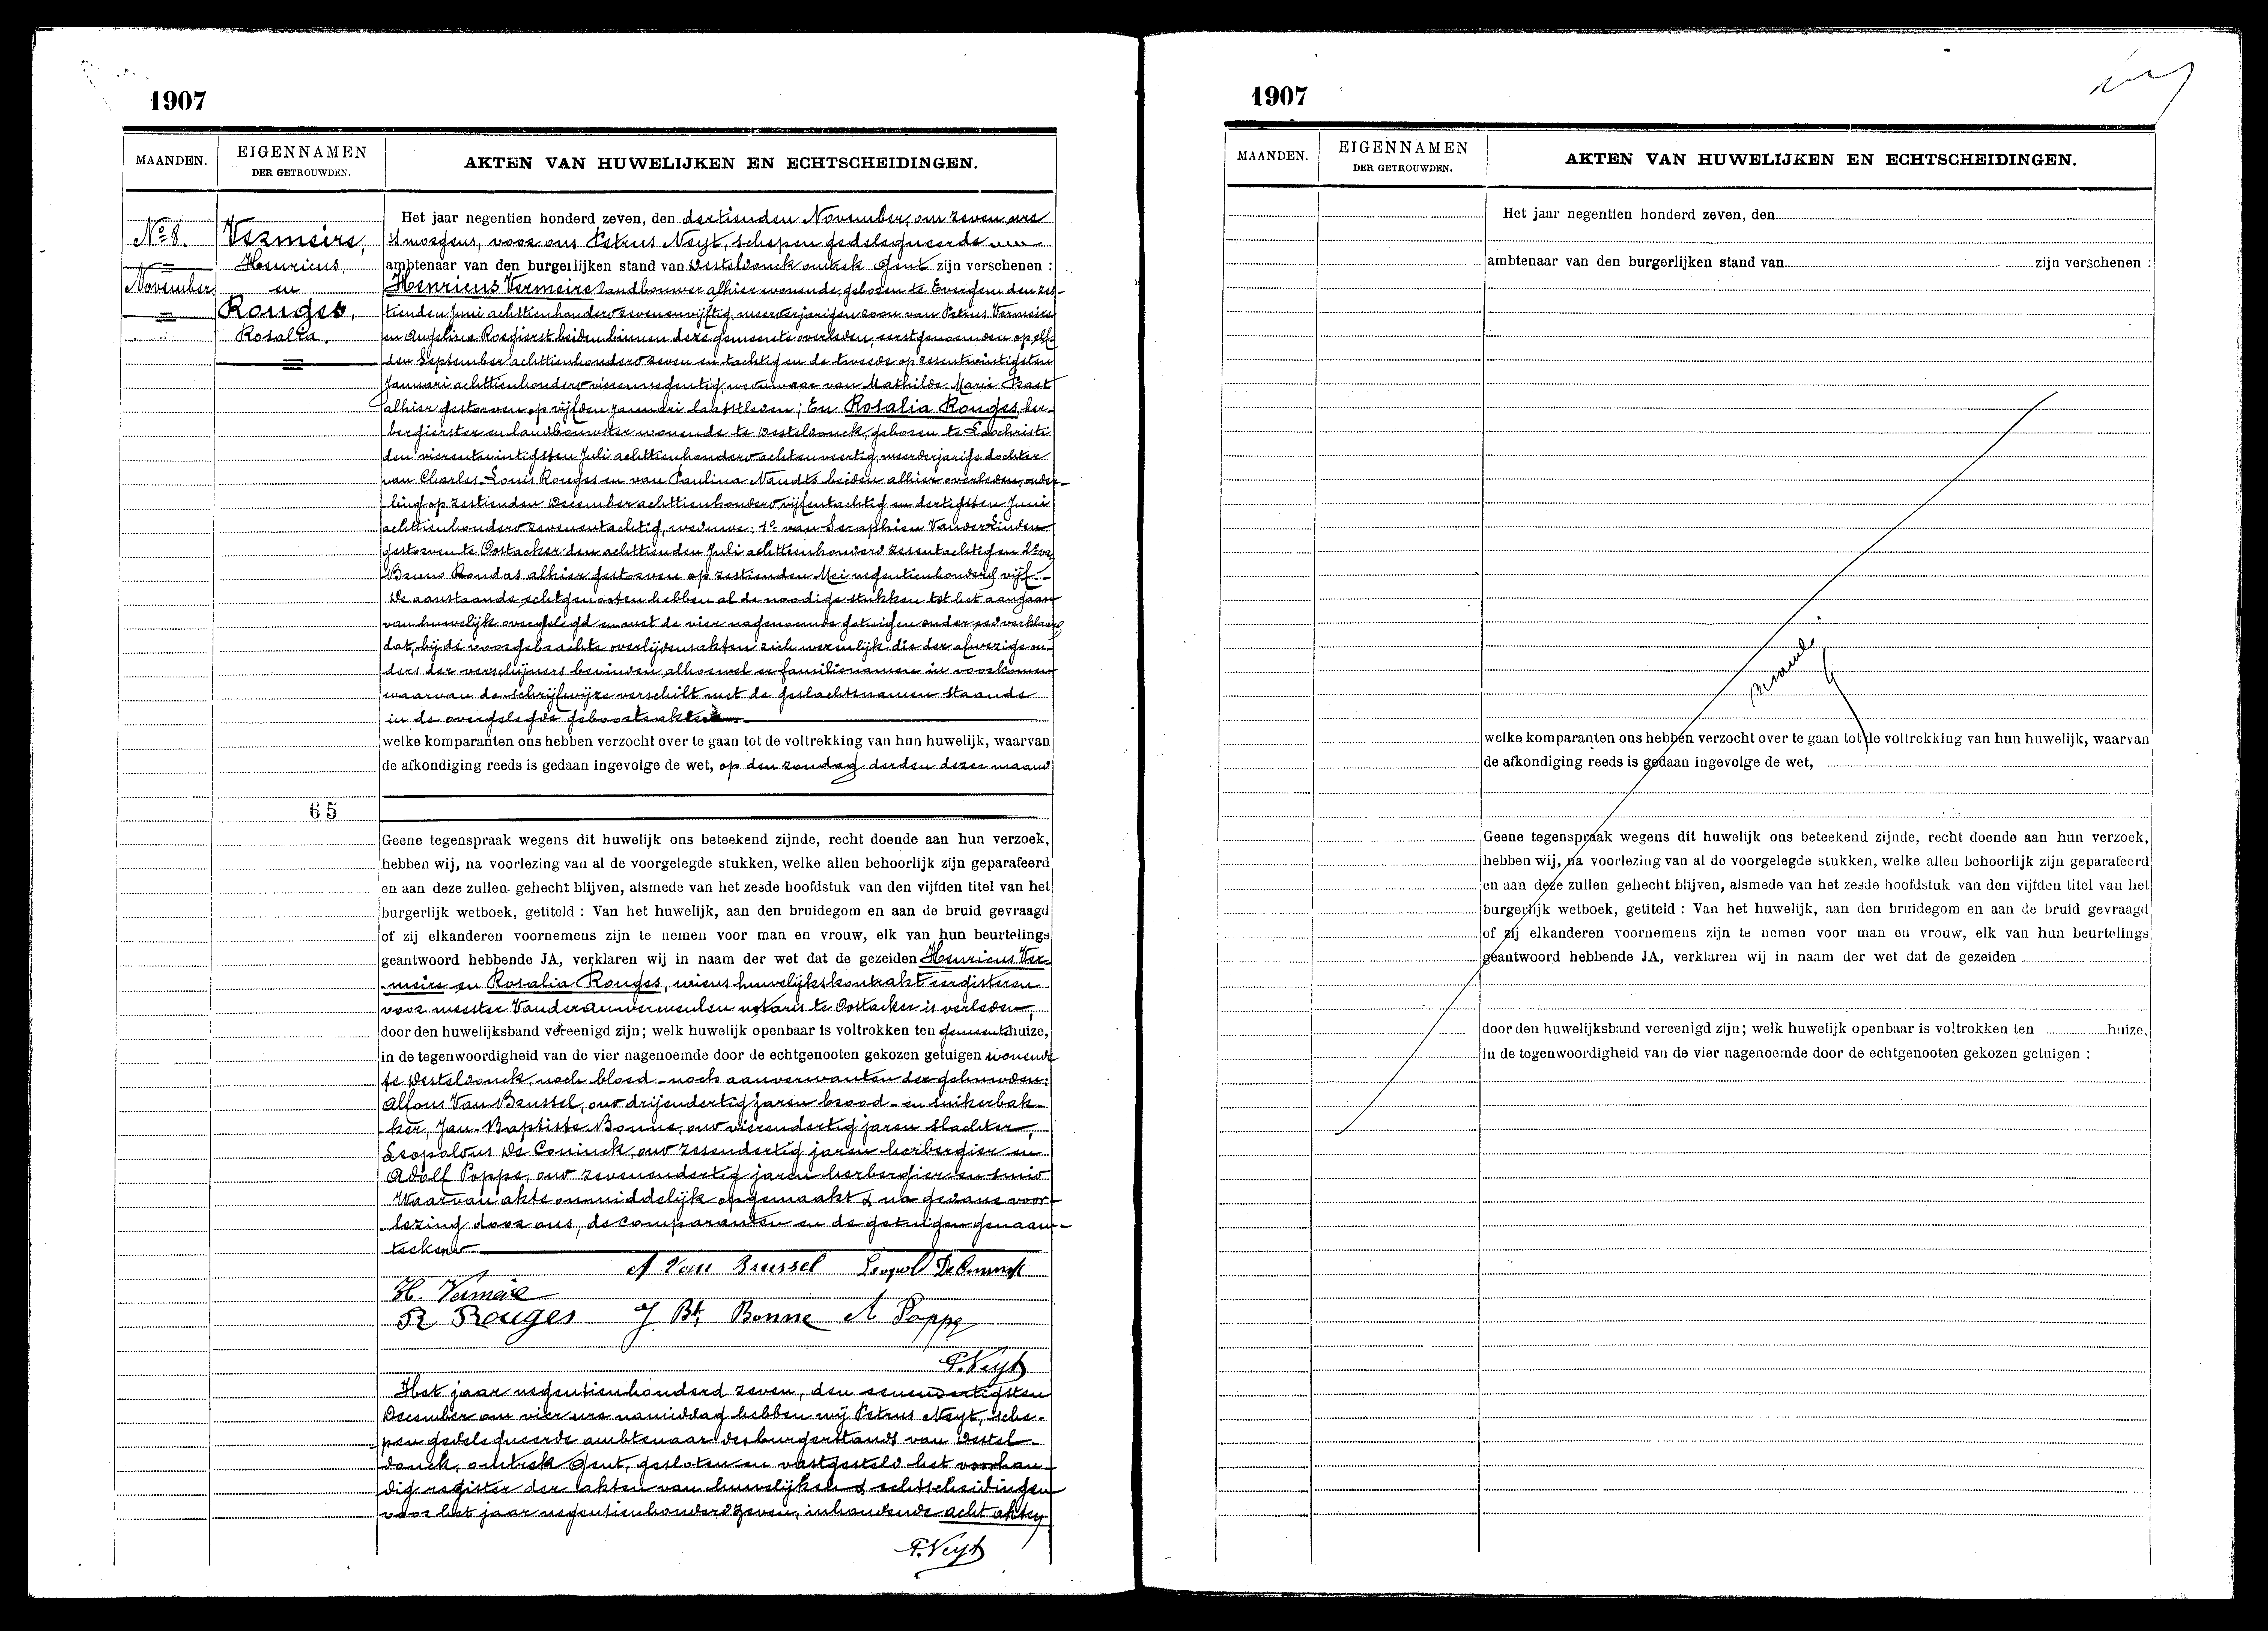 1907
MAANDEN.
EIGENNAMEN
DER GETROUWDEN.
AKTEN VAN HUWELIJKEN EN ECHTSCHEIDINGEN.
No 8.
November
Vermeire,
Henricus,
en
Rouges,
Rosalia.
65
Het jaar negentien honderd zeven, den dertienden November, om zeven ure
's morgens, voor ons Petrus Neyt, schepen gedelegueerde
ambtenaar van den burgerlijken stand van Desteldonck omtrek Gent zijn verschenen :
Henricus Vermeire landbouwer alhier wonende, geboren te Evergem den zes-
tienden Juni achttienhonderd zevenenvijftig, meerderjarigen zoon van Petrus Vermeire
en Angelina Rosgierst beiden binnen deze gemeente overleden, eerstgenoemden op elf-
den September achttienhonderd zeven en tachtig en de tweede op zesentwintigsten
Januari achttienhonderd vierennegentig, weduwaar van Mathilde Marie Praet
alhier gestorven op vijfden Januari laatstleden; En Rosalia Rouges her-
bergierster en landbouwster wonende te Desteldonck, geboren te Loochristi
den vierentwintigsten Juli achttienhonderd achtenveertig, meerderjarige dochter
van Charles-Louis Rouges en van Paulina Naudts beiden alhier overleden, onder-
ling op zestienden December achttienhonderd vijfentachtig en dertigsten Juni
achttienhonderd zevenentachtig, weduwe: 1o van Seraphien Vander Linden
gestorven te Oostacker den achttienden Juli achttienhonderd zesentachtig en 2o van
Bruno Roudas alhier gestorven op zestienden Mei negentienhonderd vijf.-
De aanstaande echtgenooten hebben al de noodige stukken tot het aangaan
van huwelijk overgelegd en met de vier nagenoemde getuigen onder eed verklaard
dat, bij de voorgebrachte overlijdensakten zich wezenlijk die der afwezige ou-
ders der verschijners bevinden, alhoewel er familienamen in voorkomen
waarvan de schrijfwijze verschilt met de geslachtsnamen staande
in de overgelegde geboorteakten.
welke komparanten ons hebben verzocht over te gaan tot de voltrekking van hun huwelijk, waarvan
de afkondiging reeds is gedaan ingevolge de wet, op den zondag derden dezer maand
Geene tegenspraak wegens dit huwelijk ons beteekend zijnde, recht doende aan hun verzoek,
hebben wij, na voorlezing van al de voorgelegde stukken, welke allen behoorlijk zijn geparafeerd
en aan deze zullen gehecht blijven, alsmede van het zesde hoofdstuk van den vijfden titel van het
burgerlijk wetboek, getiteld : Van het huwelijk, aan den bruidegom en aan de bruid gevraagd
of zij elkanderen voornemens zijn te nemen voor man en vrouw, elk van hun beurtelings
geantwoord hebbende JA, verklaren wij in naam der wet dat de gezeiden Henricus Ver-
meire en Rosalia Rouges, wiens huwelijkskontrakt eergisteren
voor meester Vanderauwermeulen notaris te Oostacker is verleden,
door den huwelijksband vereenigd zijn; welk huwelijk openbaar is voltrokken ten gemeentehuize,
in de tegenwoordigheid van de vier nagenoemde door de echtgenooten gekozen getuigen wonende
te Desteldonck, noch bloed- noch aanverwanten der gehuwden:
Alfons Van Brussel, oud drijendertig jaren brood- en suikerbak-
ker, Jan-Baptiste Bonne, oud vierendertig jaren slachter,
Leopoldus De Coninck, oud zesendertig jaren herbergier en
Adolf Poppe, oud zevenendertig jaren herbergier en smid
Waarvan akte onmiddelijk opgemaakt & na gedane voor-
lezing door ons, de comparanten en de getuigen genaam-
teekend.
A Van Brussel Leopol DeConinck
H. Vermeire
R Rouges J. Bt, Bonne A Poppe
P. Neyt
Het jaar negentienhonderd zeven, den eenendertigsten
December om vier ure namiddag hebben wij Petrus Neyt, sche-
pen gedelegueerde ambtenaar des burgerstands van Destel-
donck, omtrek Gent, gesloten en vastgesteld het voorhan-
dig register der akten van huwelijken & echtscheidingen
voor het jaar negentienhonderd zeven, inhoudende acht akten
P. Neyt
1907
MAANDEN.
EIGENNAMEN
DER GETROUWDEN.
AKTEN VAN HUWELIJKEN EN ECHTSCHEIDINGEN.
Het jaar negentien honderd zeven, den
ambtenaar van den burgerlijken stand van zijn verschenen :
welke komparanten ons hebben verzocht over te gaan tot de voltrekking van hun huwelijk, waarvan
de afkondiging reeds is gedaan ingevolge de wet,
Geene tegenspraak wegens dit huwelijk ons beteekend zijnde, recht doende aan hun verzoek,
hebben wij, na voorlezing van al de voorgelegde stukken, welke allen behoorlijk zijn geparafeerd
en aan deze zullen gehecht blijven, alsmede van het zesde hoofdstuk van den vijfden titel van het
burgerlijk wetboek, getiteld : Van het huwelijk, aan den bruidegom en aan de bruid gevraagd
of zij elkanderen voornemens zijn te nemen voor man en vrouw, elk van hun beurtelings
geantwoord hebbende JA, verklaren wij in naam der wet dat de gezeiden
door den huwelijksband vereenigd zijn; welk huwelijk openbaar is voltrokken ten huize,
in de tegenwoordigheid van de vier nagenoemde door de echtgenooten gekozen getuigen :